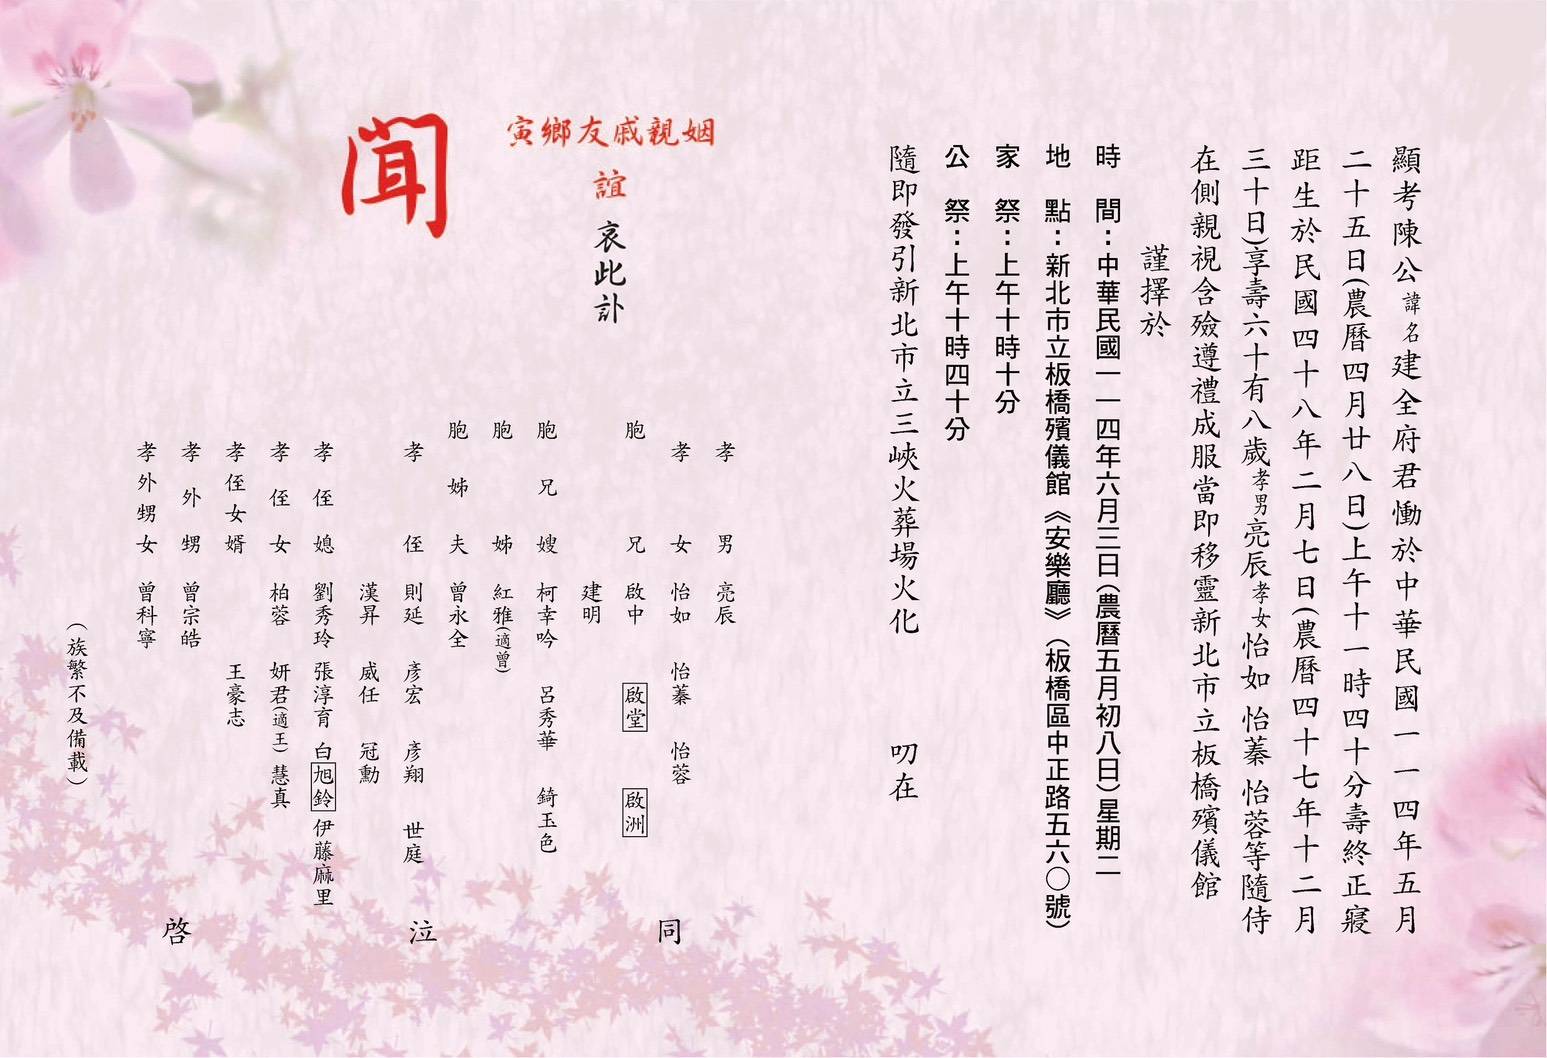 顯考陳公諱名建全府君慟於中華民國一一四年五月
二十五日(農曆四月廿八日)上午十一時四十分壽終正寢
距生於民國四十八年二月七日(農曆四十七年十二月
三十日)享壽六十有八歲孝男亮辰孝女怡如 怡蓁 怡蓉等隨侍
在側親視含殮遵禮成服當即移靈新北市立板橋殯儀館
謹擇於
時 間：中華民國一一四年六月三日(農曆五月初八日)星期二
地 點：新北市立板橋殯儀館《安樂廳》(板橋區中正路五六〇號)
家 祭：上午十時十分
公 祭：上午十時四十分
隨即發引新北市立三峽火葬場火化 叨在
姻親戚友鄉寅
誼
哀此訃
聞
孝男 亮辰
孝女 怡如 怡蓁 怡蓉
胞兄 啟中 啟堂 啟洲
建明
胞兄嫂 柯幸吟 呂秀華 錡玉色
胞姊 紅雅(適曾)
胞姊夫 曾永全
孝侄 則延 彥宏 彥翔 世庭
漢昇 威任 冠勳
孝侄媳 劉秀玲 張淳育 白旭鈴 伊藤麻里
孝侄女 柏蓉 妍君(適王) 慧真
孝侄女婿 王豪志
孝外甥 曾宗皓
孝外甥女 曾科寧
(族繁不及備載)
同 泣 啓